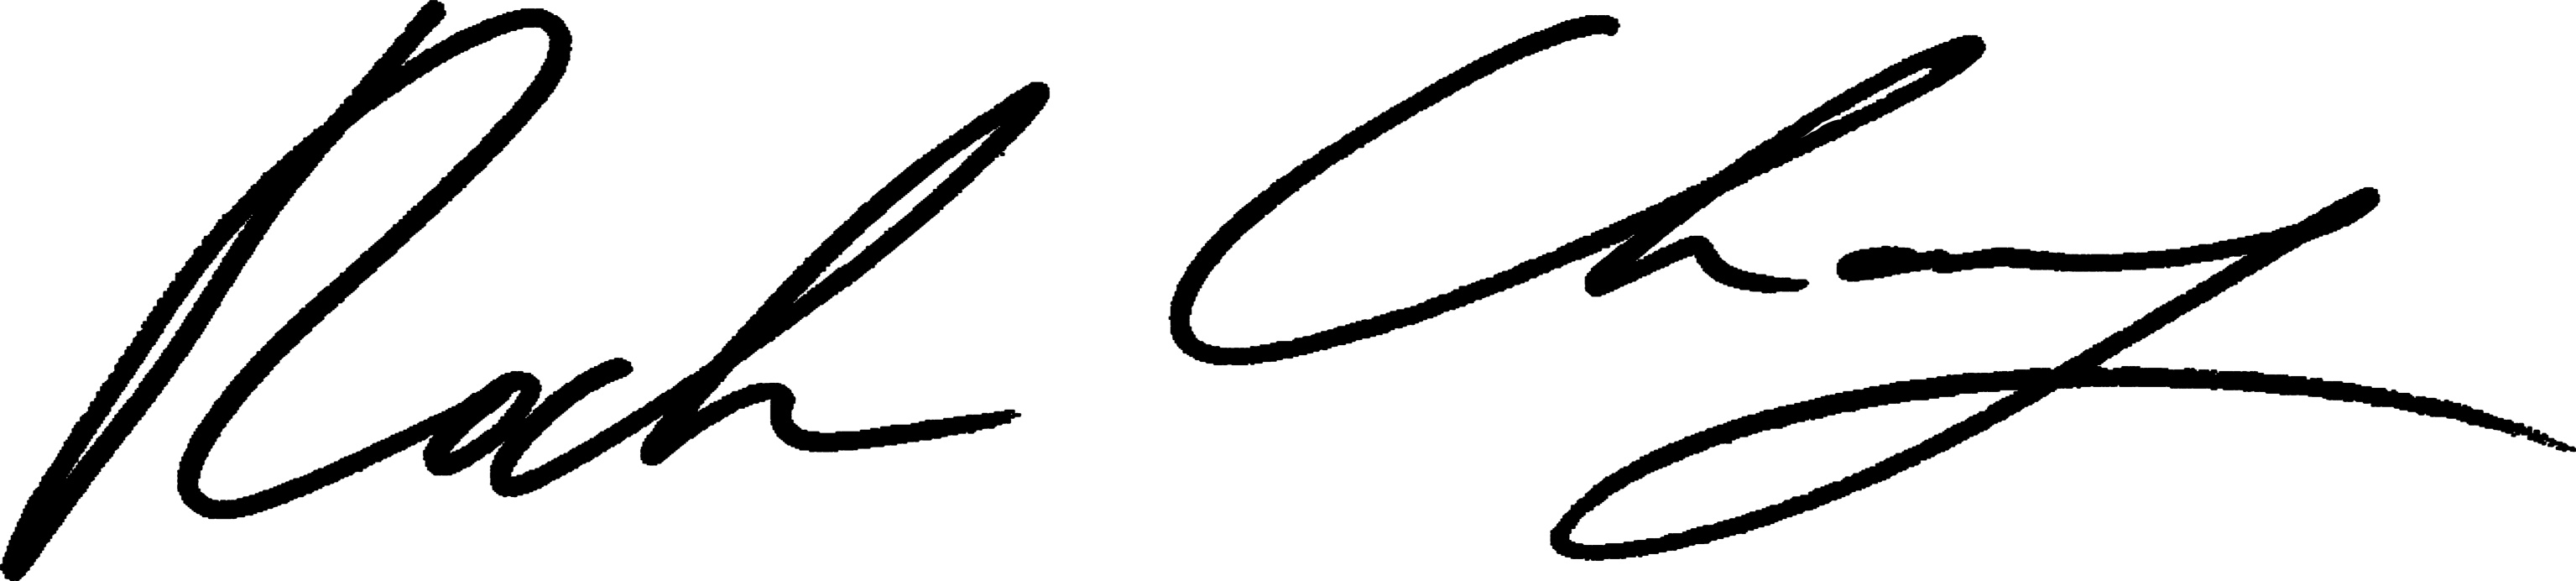 Rach Chang